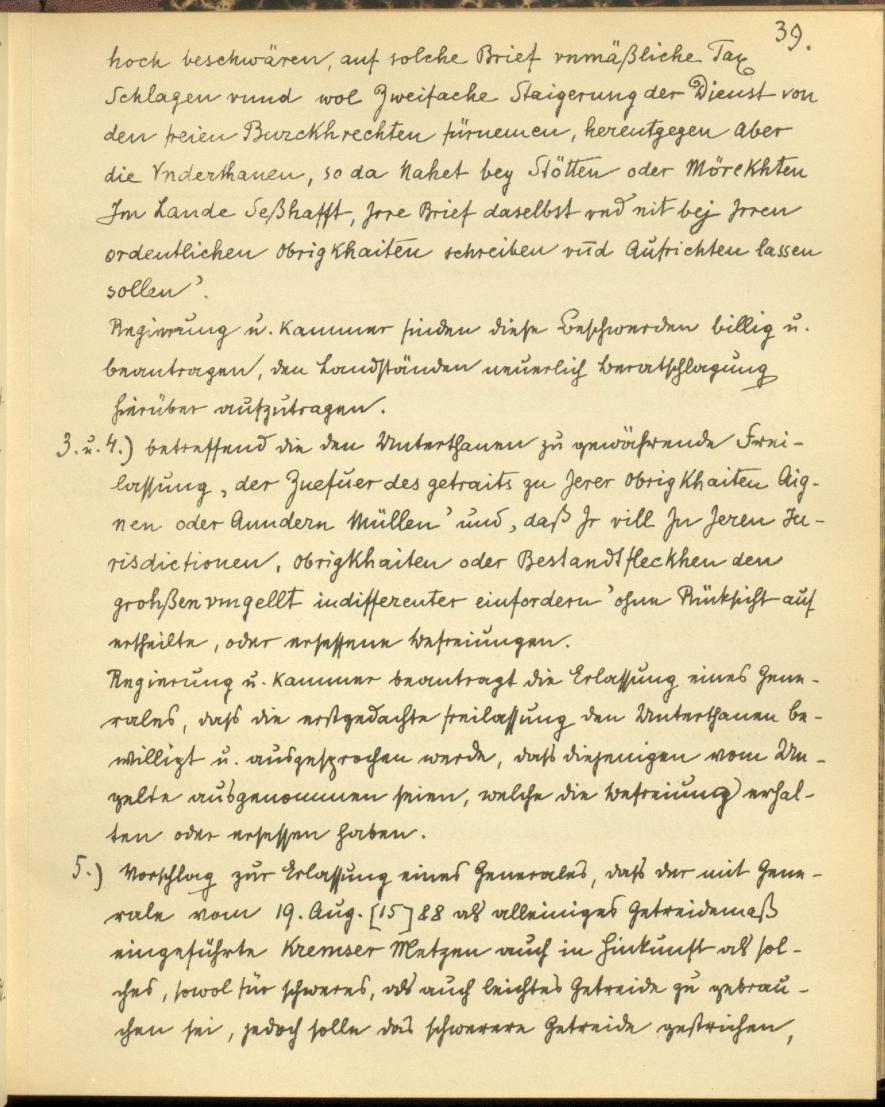 39.
hoch beschwären, auf solche Brief vnmäßliche Tax
Schlagen vnnd wol Zweifache Staigerung der Dienst von
den freien Burckhrechten fürnemen, herentgegen Aber
die Vnderthanen, so da Nahet bey Stötten oder Mörckhten
Im Lande Seßhafft, Jrre Brief daselbst vnd nit bej Jrren
ordentlichen Obrigkhaiten schreiben vnd Aufrichten lassen
sollen'.
Regierung u. Kammer finden diese Beschwerden billig u.
beantragen, den Landständen neuerlich Beratschlagung
hierüber aufzutragen.
3. u. 4.) betreffend die den Unterthanen zu gewährende Frei-
lassung, der Zuefuer des getraits zu Jerer Obrigkhaiten Aig-
nen oder Anndern Müllen' und, daß Jr vill Jn Jeren Ju-
risdictionen, Obrigkhaiten oder Bestandtfleckhen den
grohßen vmgellt indifferenter einfordern' ohne Rücksicht auf
ertheilte, oder ersessene Befreiungen.
Regierung u. Kammer beantragt die Erlassung eines Gene-
rales, dass die erstgedachte Freilassung den Unterthanen be-
willigt u. ausgesprochen werde, dass diejenigen vom Un-
gelte ausgenommen seien, welche die Befreiung erhal-
ten oder ersessen haben.
5.) Vorschlag zur Erlassung eines Generales, dass der mit Gene-
rale vom 19. Aug. [15]88 als alleiniges Getreidemaß
eingeführte Kremser Metzen auch in Hinkunft als sol-
ches, sowol für schweres, als auch leichtes Getreide zu gebrau-
chen sei, jedoch solle das schwerere Getreide gestrichen,